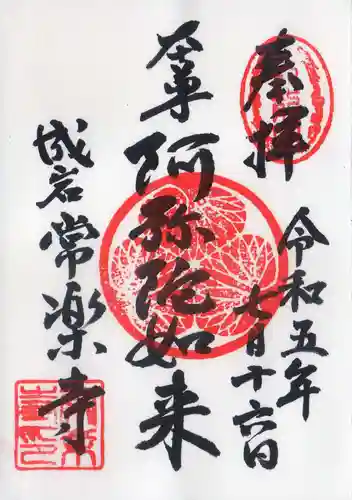 奉拝
令和五年
七月十六日
本尊
阿弥陀如来
成岩
常楽寺